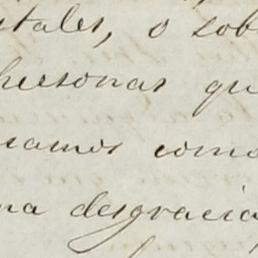 stales, o sob
personas qu
samos como
na desgracia,